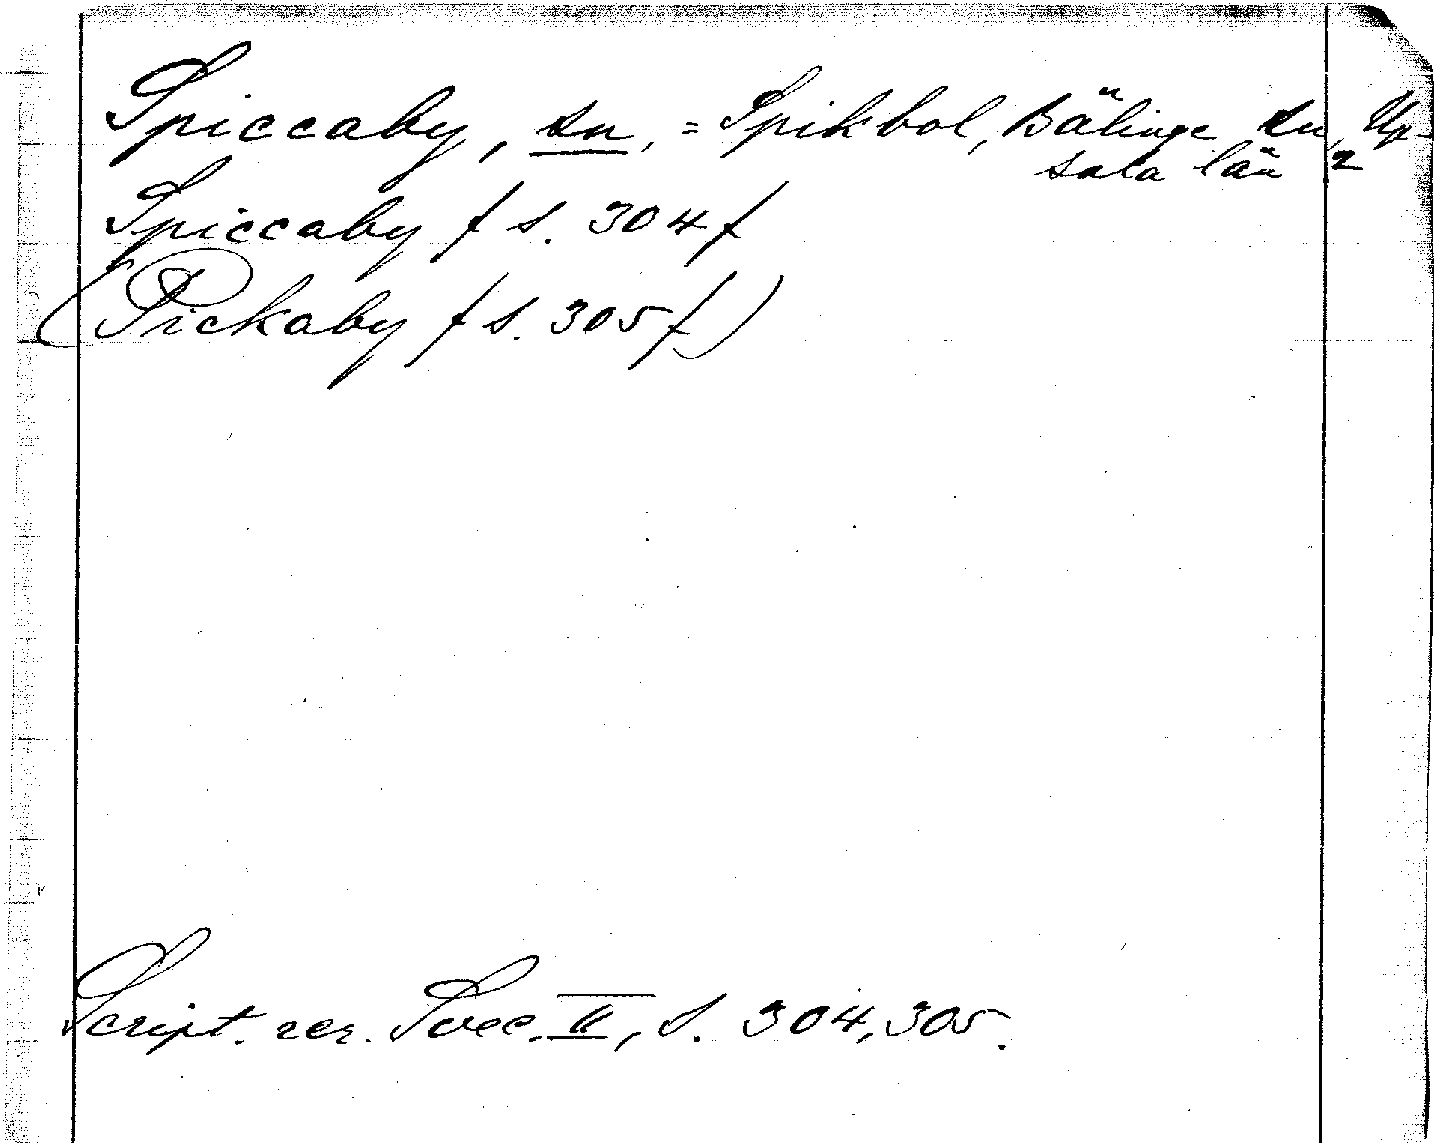 Spiccaby, sn, = Spikbol, Bälinge sn, Up-
sala län
Spiccaby / s. 304 /
(Pickaby / s. 305 /)
Script. rer. Svec. II, s. 304, 305.